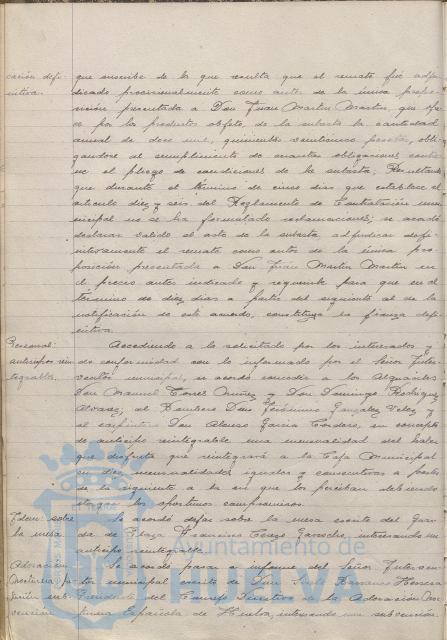 cación defi- que suscribe de lo que resulta que el remate fué adju-
nitiva. dicado provisionalmente como autor de la única propo-
sición presentada a Don Juan Martin Martin, que ofre-
ce por los productos objeto, de la subasta la cantidad
anual de doce mil, quinientas veinticinco pesetas, obli-
gándose al cumplimiento de cuantas obligaciones contie-
ne el pliego de condiciones de la subasta. Resultando
que durante el término de cinco dias que establece el
articulo diez y seis del Reglamento de Contratación mu-
nicipal no se ha formulado reclamaciones; se acordó
declarar valido el acto de la subasta adjudicar defi-
nitivamente el remate como autor de la única pro-
posición presentada a Don Juan Martin Martin en
el precio antes indicado y requerirle para que en el
término de diez dias a partir del siguiente al de la
notificación de este acuerdo, constituya la fianza defi-
nitiva.
Personal: Accediendo a lo solicitado por los interesados y
anticipos rein- de conformidad con lo informado por el Señor Inter-
tegrables. ventor municipal, se acordó conceder a los Alguaciles
Don Manuel Torres Muñoz y Don Domingo Rodriguez
Alvarez; al Bombero Don Jerónimo Gonzalez Velez y
al carpintero Don Alonso Garcia Cordero, en concepto
de anticipo reintegrable una mensualidad del haber
que disfruta que reintegrará a la Caja Municipal
en diez mensualidades iguales y consecutivas a partir
de la siguiente a la en que los perciban debiendo
otorgar los oportunos compromisos.
Idem: sobre Se acordó dejar sobre la mesa escrito del Guar-
la mesa da de Plaza Francisco Cerezo Garrocho, interesando un
anticipo reintegrable.
Adoración Se acordó pasar a informe del Señor Interven-
Nocturna tor municipal escrito de Don
Presidente del Consejo Directivo de la Adoración Noc-
vención turna Española de Huelva, interesando una subvención
Ayuntamiento de
HUELVA